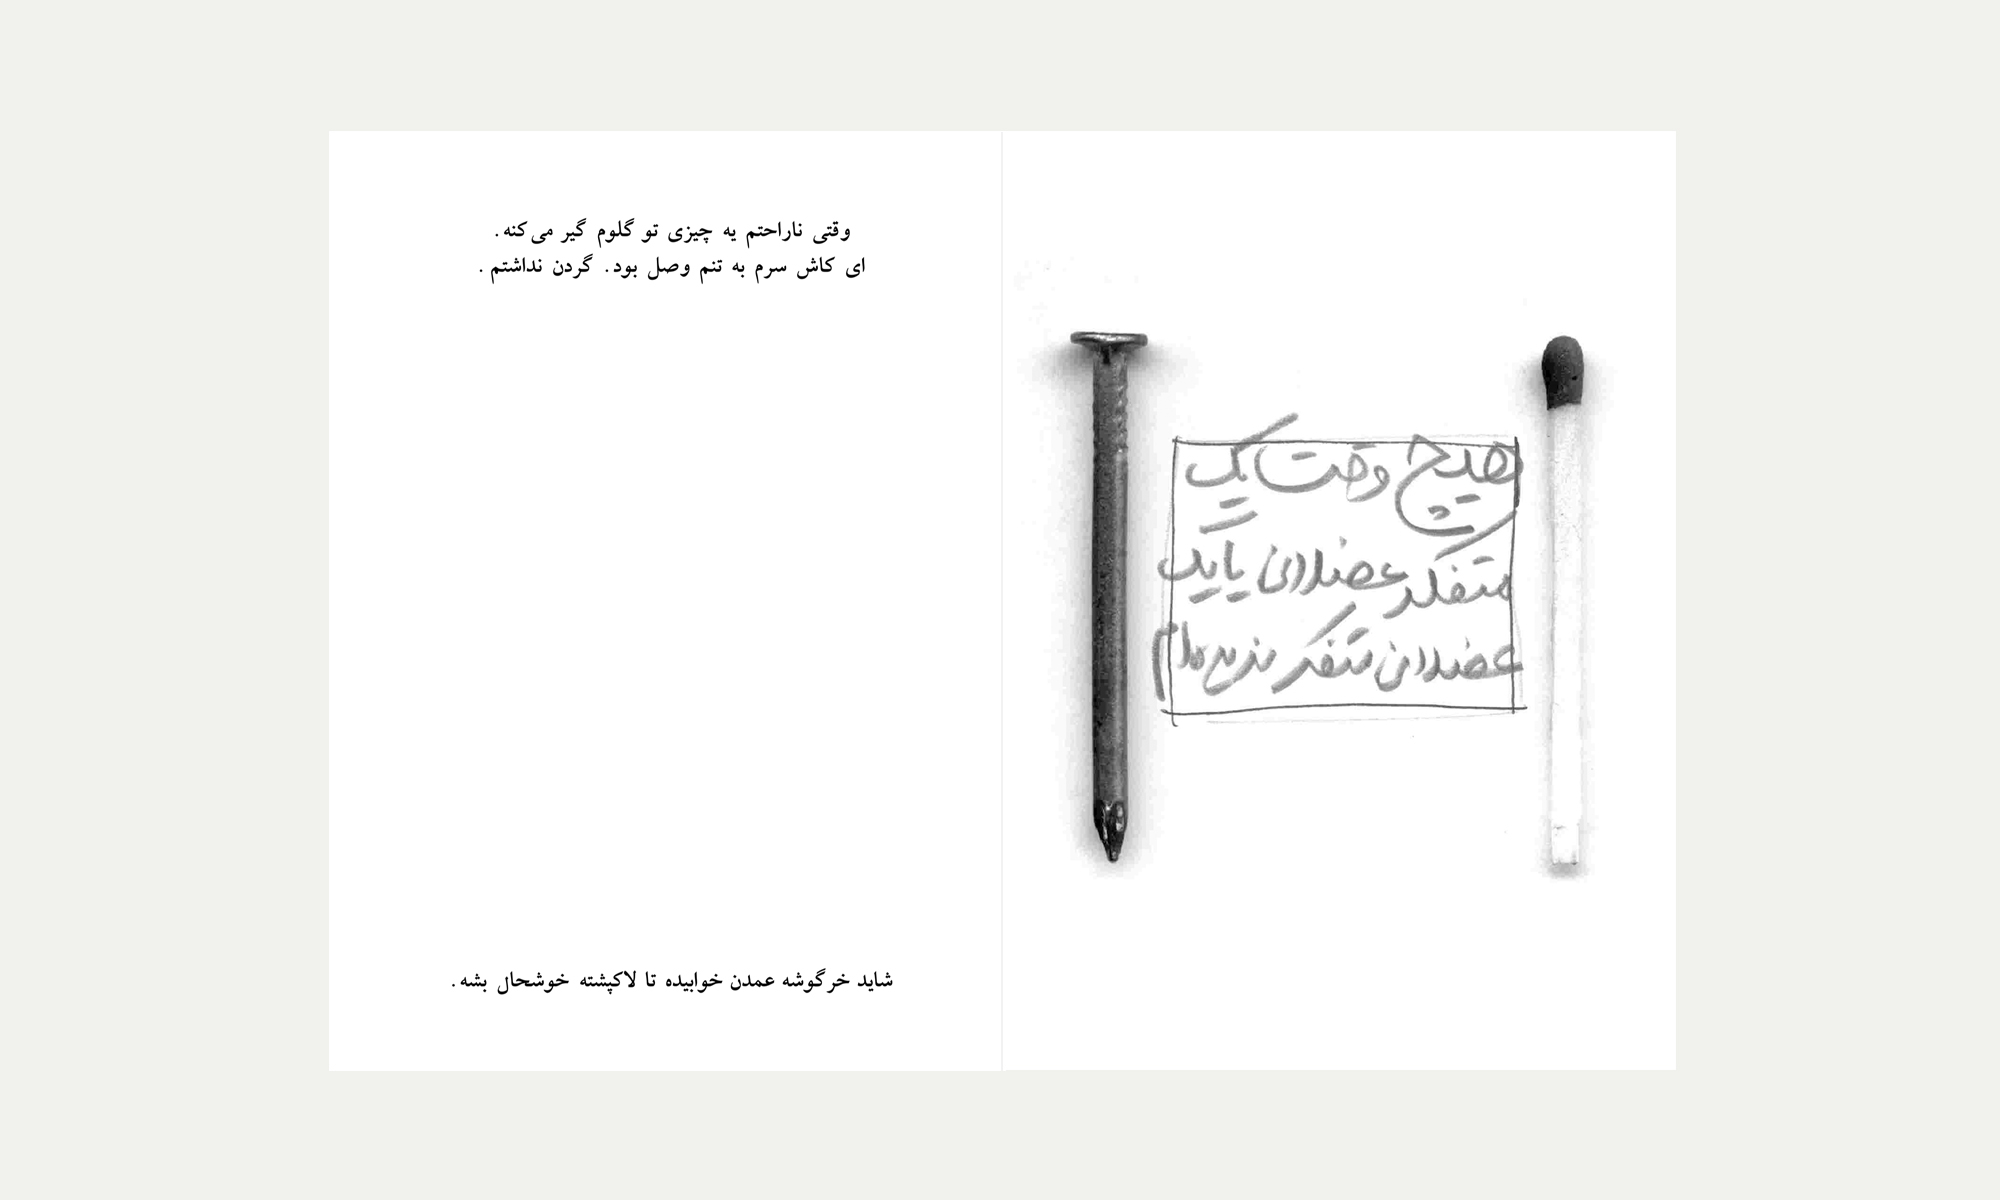 وقتی ناراحتم یه چیزی تو گلوم گیر می‌کنه.
ای کاش سرم به تنم وصل بود. گردن نداشتم.
شاید خرگوشه عمدن خوابیده تا لاکپشته خوشحال بشه.
هیچ وقت یک
متفکر عضلانی یا یک
عضلانی متفکر ندیده‌ام